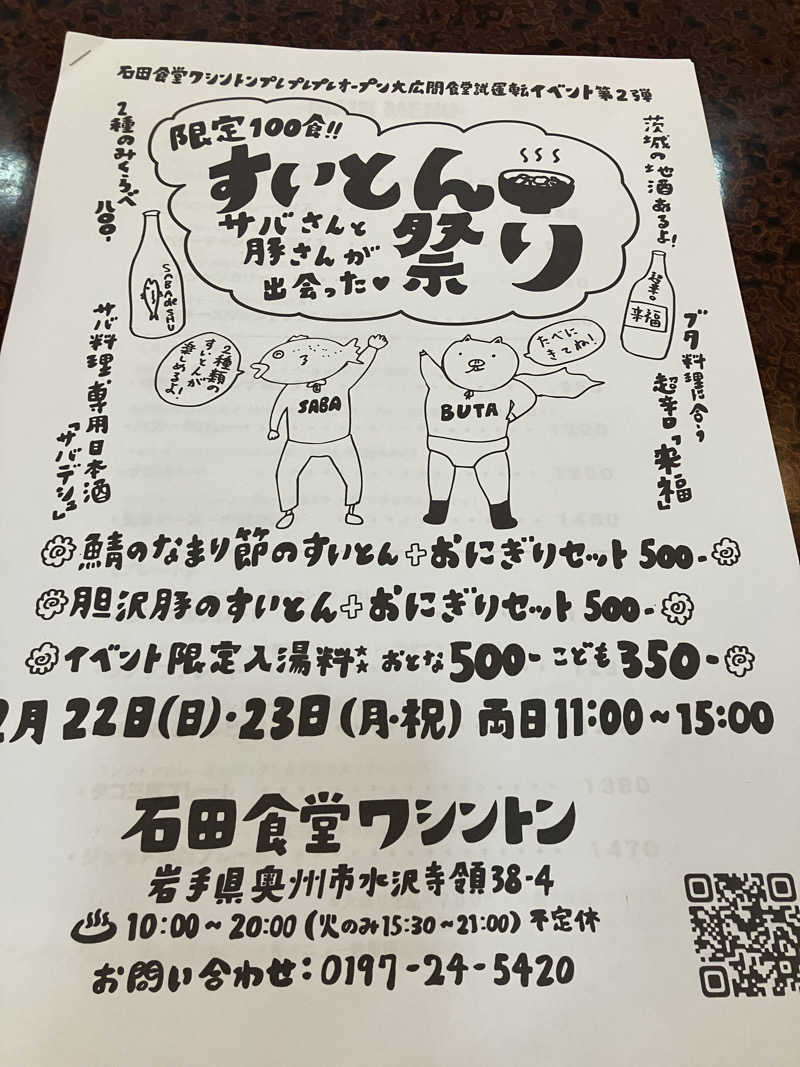 石田食堂ワシントンプレプレプレオープン大広間食堂試運転イベント第2弾
限定100食!!
すいとん
祭り
サバさんと
豚さんが
出会った♥
2種のみくらべ
八〇〇-
茨城の地酒あるよ!
SABAdeSHU
超辛口
来福
サバ料理専用日本酒
「サバデシュ」
ブタ料理に合う
超辛口「来福」
2種類の
すいとんが
楽しめるよ!
たべに
きてね!
SABA
BUTA
鯖のなまり節のすいとん+おにぎりセット 500-
胆沢豚のすいとん+おにぎりセット 500-
イベント限定入湯料 おとな500- こども350-
2月 22日(日)・23日(月・祝) 両日11:00~15:00
石田食堂ワシントン
岩手県奥州市水沢寺領38-4
♨ 10:00~20:00 (火のみ15:30~21:00) 不定休
お問い合わせ:0197-24-5420